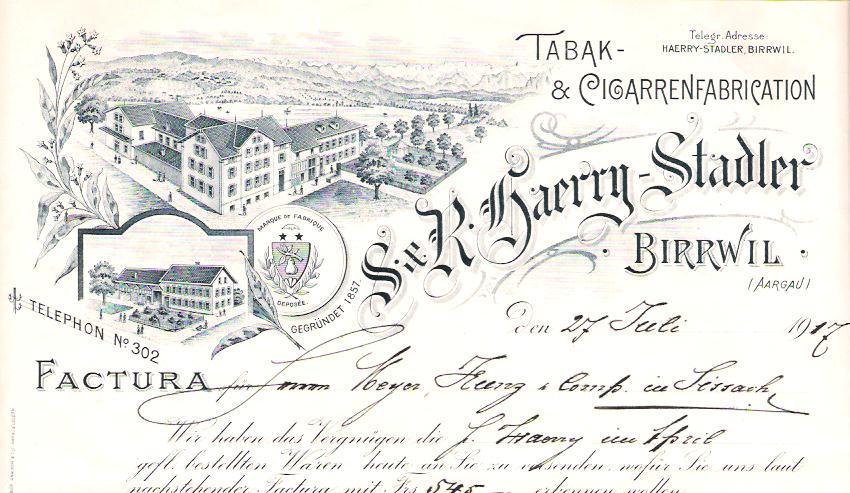 TABAK-
& CIGARRENFABRICATION
Telegr. Adresse:
HAERRY-STADLER, BIRRWIL.
S. & R. Haerry-Stadler
BIRRWIL
(AARGAU)
MARQUE DE FABRIQUE
DEPOSÉE
GEGRÜNDET 1857.
TELEPHON No 302
den 27 Juli 1917
FACTURA für Herren Meyer, Kunz & Comp. in Sissach
Wir haben das Vergnügen die p. Haerry im April
gefl. bestellten Waren heute an Sie zu versenden, wofür Sie uns laut
nachstehender Factura mit Frs 545 — erkennen wollen